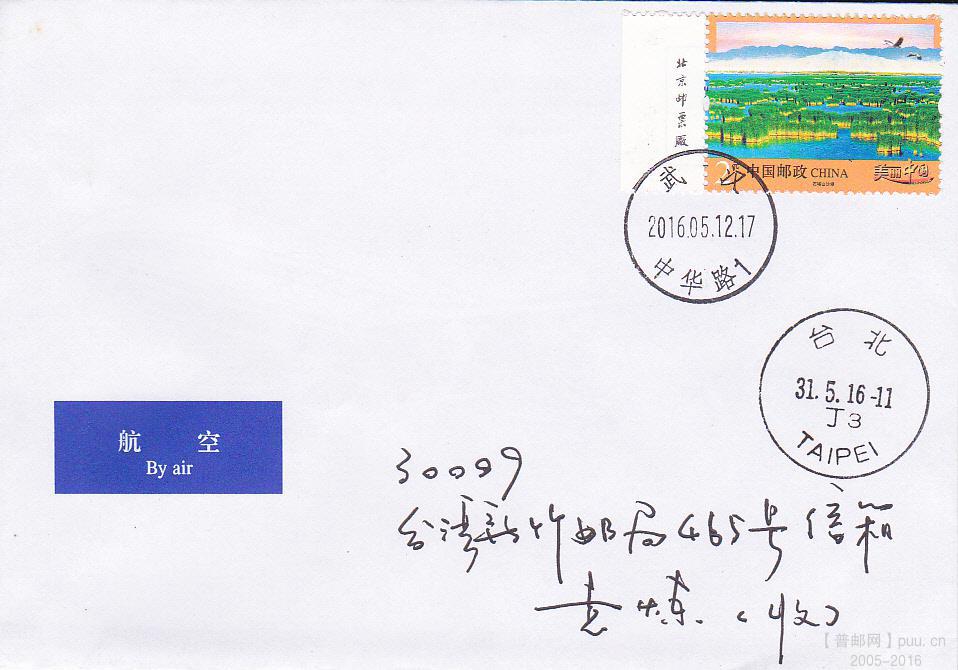 北京邮票厰
中国邮政 CHINA
美丽中国
武汉
2016.05.12.17
中华路1
台北
31.5.16-11
J3
TAIPEI
航 空
By air
30099
台湾新竹邮局465号信箱
袁 (收)
【普邮网】puu.cn
2005-2016